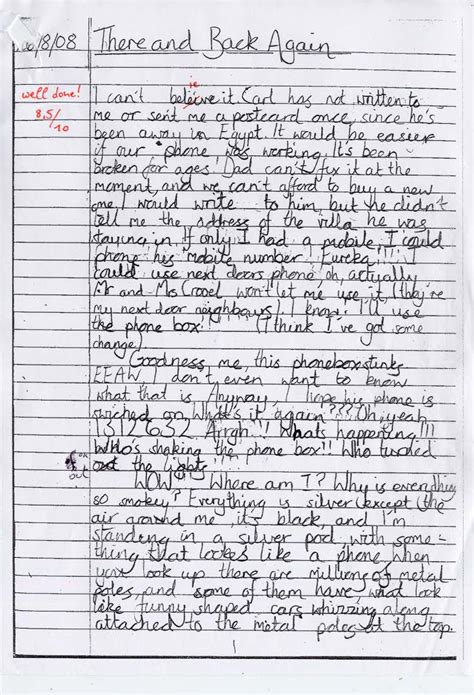 /8/08 There and Back Again
well done!
8,5/10
ie
I can't beleive it. Carl has not written to
me or sent me a postcard once, since he's
been away in Egypt. It would be easier
if our phone was working. It's been
broken for ages. Dad can't fix it at the
moment, and we can't afford to buy a new
one. I would write to him, but he didn't
tell me the address of the villa he was
staying in. If only I had a mobile, I could
phone his mobile number! Eureka!!! I
could use next doors phone, oh, actually
Mr and Mrs won't let me use it, (they're
my next door neighbours). I know! I'll use
the phone box!! (I think I've got some
change)
Goodness me, this phonebox stinks
EEAW I don't even want to know
what that is. Anyway, I hope his phone is
swiched on. What's it again??? Oh, yeah
1312632 Airgh!! Whats happerting!!!
Who's shaking the phone box!! Who turned
out the lights!!
out
WOW!! Where am I? Why is everything
so smokey? Everything is silver (except (the
air around me, it's black, and I'm
standing in a silver pod, with some-
thing that looks like a phone, when
you look up there are millions of metal
poles, and some of them have what look
like funny shaped cars whirring along
attached to the metal poles at the top.
1